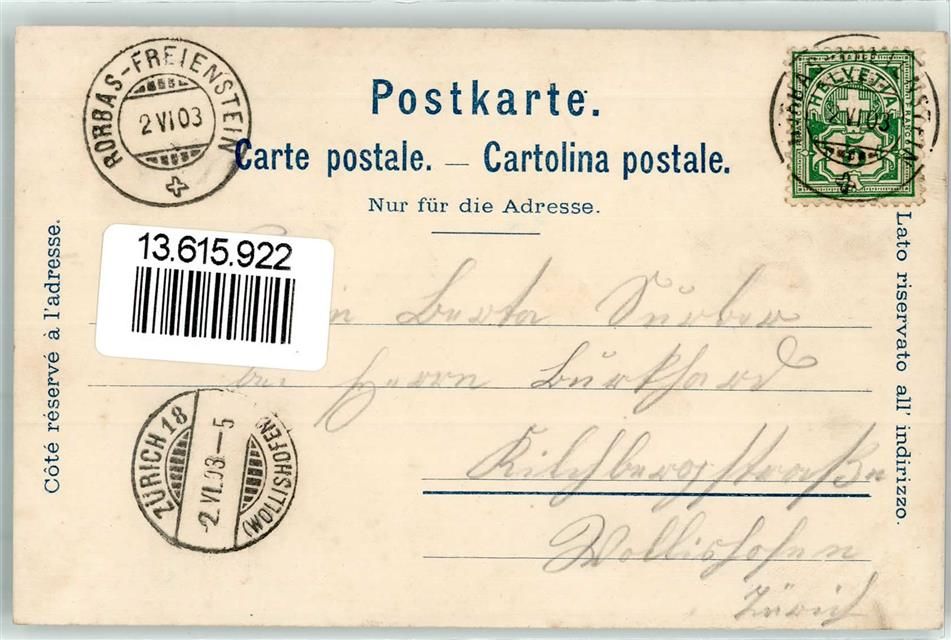 RORBAS-FREIENSTEIN
2 VI 03
Postkarte.
Carte postale. — Cartolina postale.
Nur für die Adresse.
HELVETIA
2 VI 03
Côté réservé à l'adresse.
Lato riservato all' indirizzo.
13.615.922
Berta Surber
bei Herrn Burkhard
Kilchbergstraße
Wollishofen
Zürich
ZÜRICH 18
2.VI.03.–5
(WOLLISHOFEN)